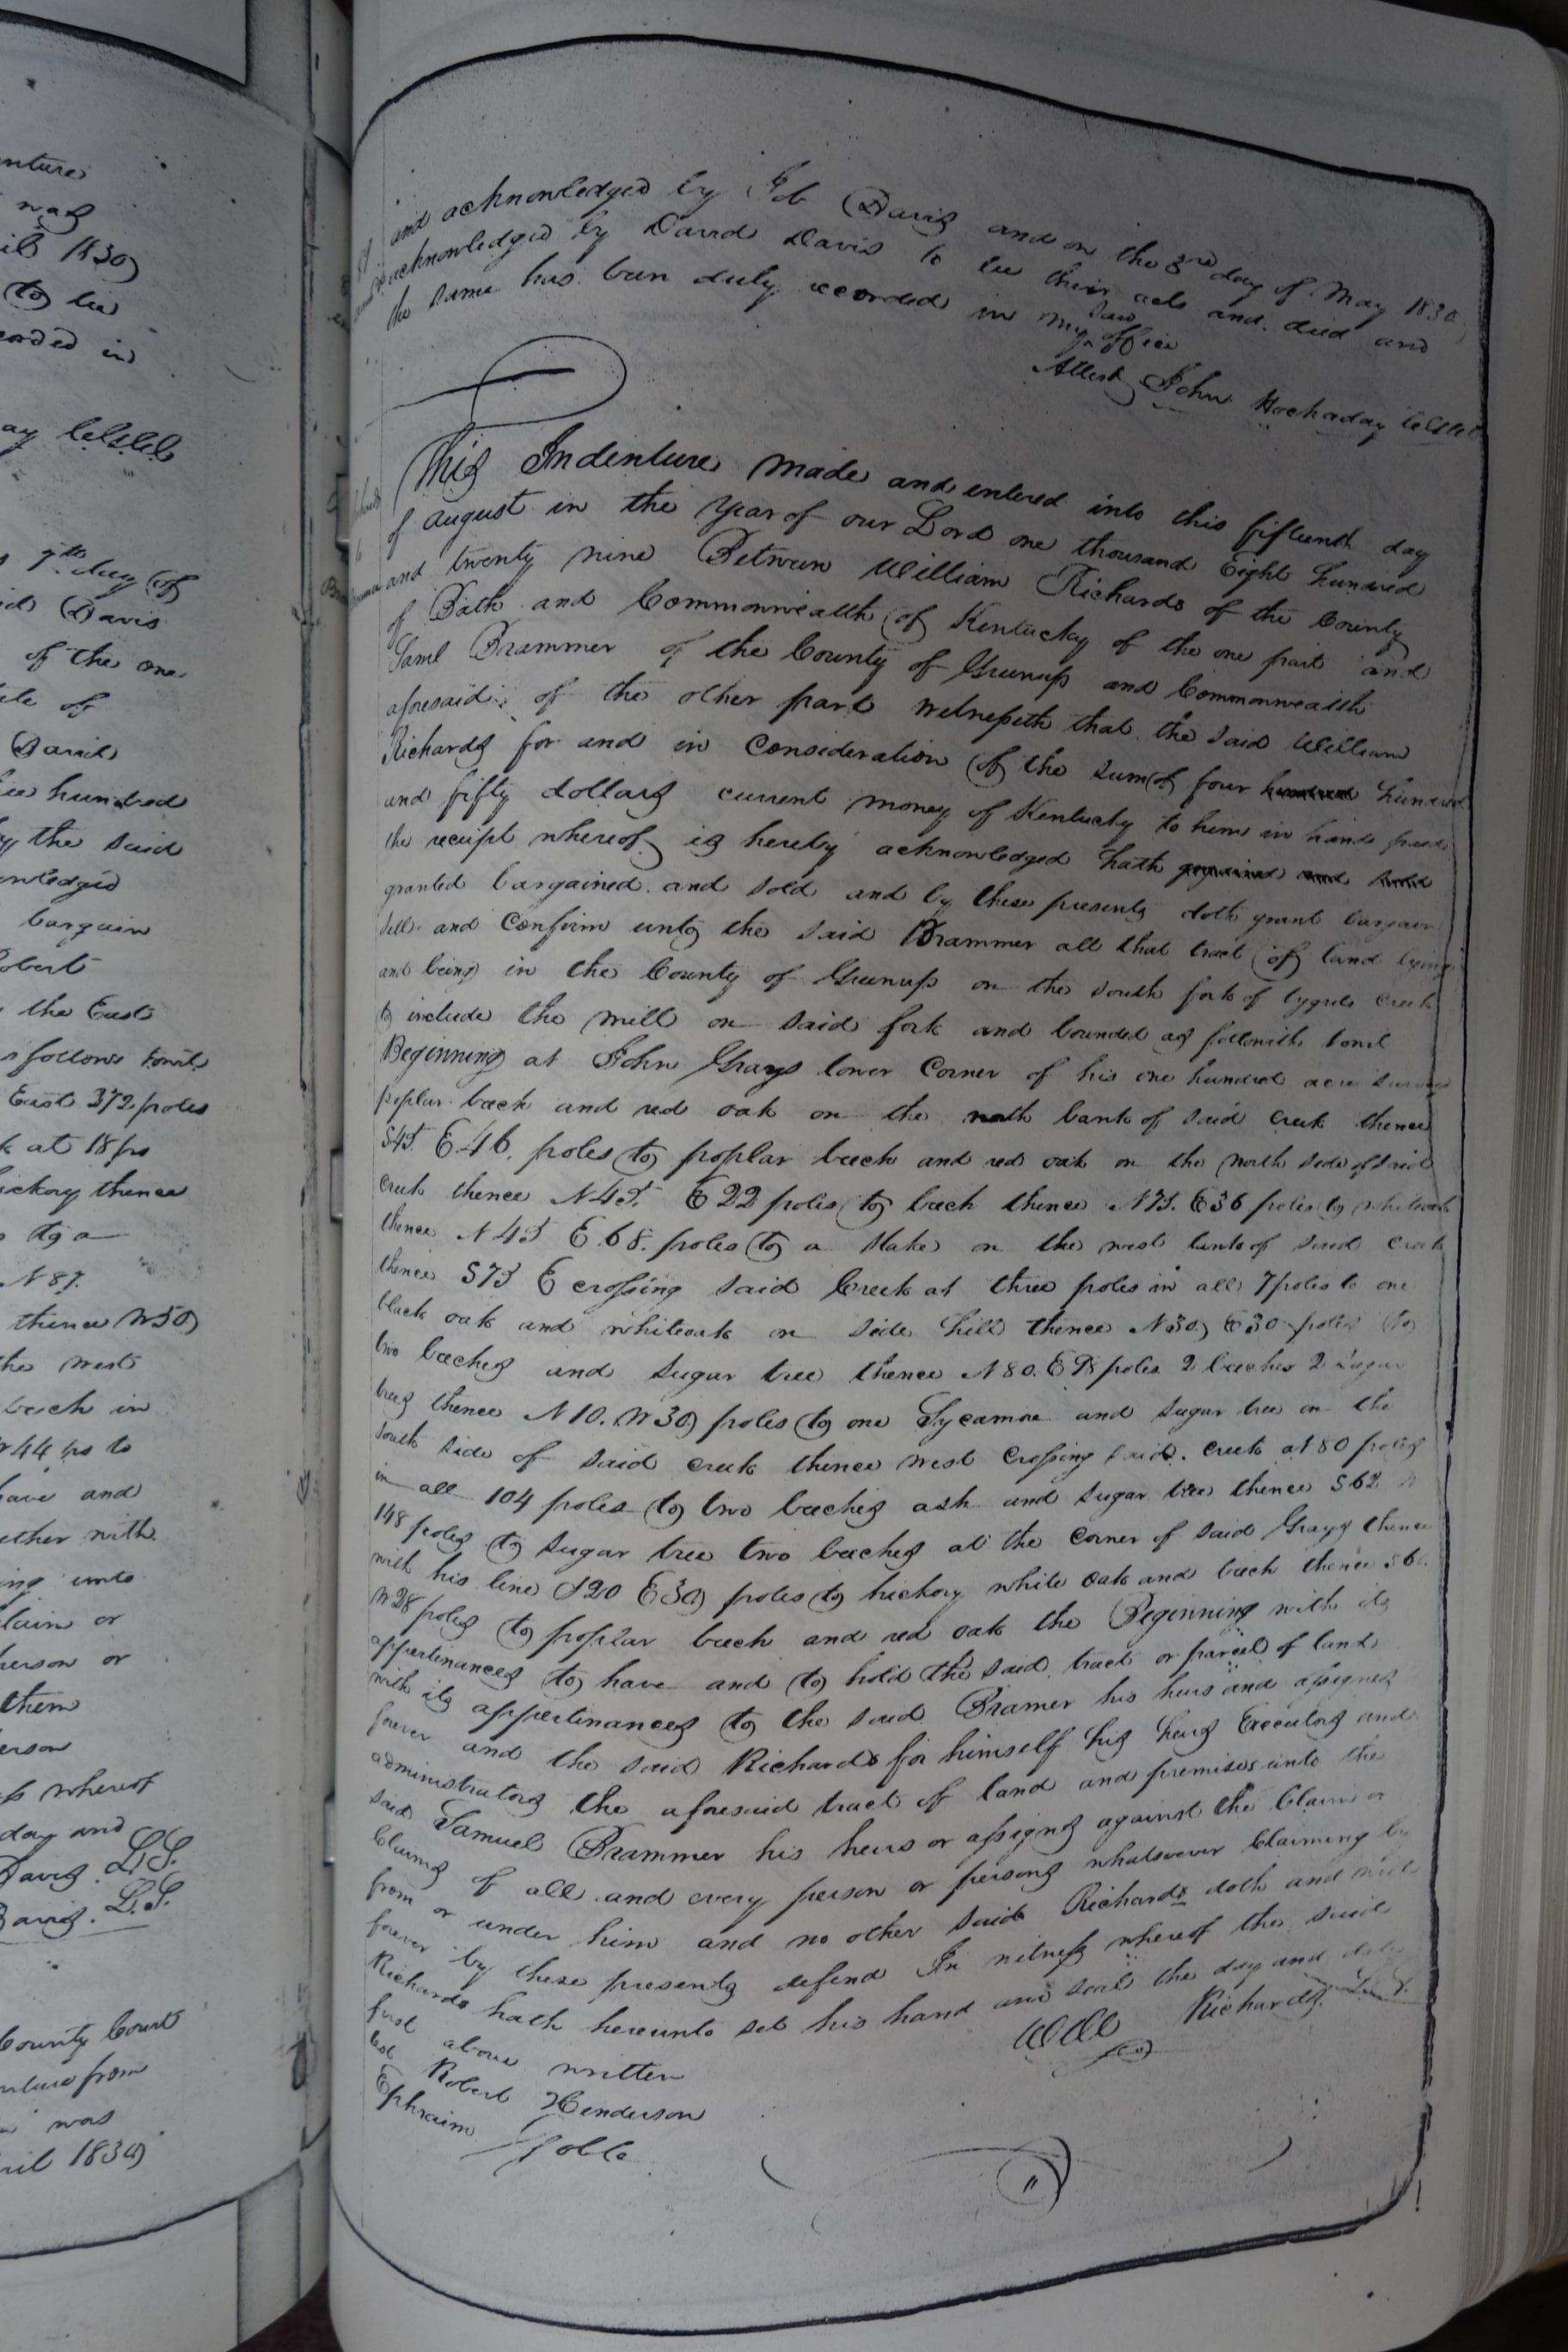 nture
was
il 1830
to be
corded in
ay Clk
7th day of
id Davis
of the one
David
ee hundred
y the said
nowledged
bargain
Robert
the East
s follows towit
East 372 poles
k at 18 ps
ickory thence
to a
N 87.
thence N 50
the west
beech in
W 44 ps to
have and
ether with
ing unto
claim or
person or
them
erson
ss whereof
day and
Davis L.S.
Davis. L.S.
County Court
nture from
was
ril 1830
and acknowledged by Job Davis and on the 3rd day of May 1830
acknowledged by David Davis to be their acts and deed and
the same has been duly recorded in my said office
Attest John Hockaday
This Indenture made and entered into this fifteenth day
of august in the year of our Lord one thousand Eight hundred
and twenty nine Between William Richards of the County
of Bath and Commonwealth of Kentucky of the one part and
Saml Brammer of the County of Greenup and Commonwealth
aforesaid of the other part witnesseth that the said William
Richards for and in Consideration of the sum of four hundred hundred
and fifty dollars current money of Kentucky to him in hand paid
the receipt whereof is hereby acknowledged hath and sold
granted bargained and sold and by these presents doth grant bargain
sell and Confirm unto the said Brammer all that tract of land lying
and being in the County of Greenup on the south fork of tygerts creek
to include the mill on said fork and bounded as followith towit
Beginning at John Grays lower Corner of his one hundred acre survey
poplar beech and red oak on the north bank of said creek thence
S 45. E 46. poles to poplar beech and red oak on the north side of said
creek thence N 45. E 22 poles to beech thence N 75. E 36 poles to whiteoak
thence N 45 E 68. poles to a stake on the west bank of said creek
thence S 75 E crossing said Creek at three poles in all 7 poles to one
black oak and whiteoak on side hill thence N 30 E 30 poles to
two beeches and sugar tree thence N 80. E 98 poles 2 beeches 2 sugar
trees thence N 10. W 30 poles to one Sycamore and sugar tree on the
south side of said creek thence west crossing said creek at 80 poles
in all 104 poles to two beeches ash and sugar tree thence S 62
148 poles to sugar tree two beeches at the corner of said Grays thence
with his line S 20 E 30 poles to hickory white oak and beech thence
W 28 poles to poplar beech and red oak the Beginning with its
appertinances to have and to hold the said tract or parcel of land
with its appertinances to the said Bramer his heirs and assignes
forever and the said Richards for himself his heirs Executors and
administrators the aforesaid tract of land and premises unto the
said Samuel Brammer his heirs or assigns against the Claim or
Claims of all and every person or persons whatsoever Claiming by
from or under him and no other said Richards doth and will
forever by these presents defend In witness whereof the said
Richards hath hereunto set his hand and seal the day and date
first above written Will Richards L.S.
Robert Henderson
Ephraim Goble